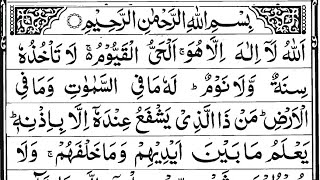 بِسْمِ اللهِ الرَّحْمٰنِ الرَّحِيْمِ
اَللهُ لَآ اِلٰهَ اِلَّا هُوَ ۚ اَلْحَىُّ الْقَيُّوْمُ ۚ لَا تَاْخُذُهٗ
سِنَةٌ وَّلَا نَوْمٌ ؕ لَهٗ مَا فِى السَّمٰوٰتِ وَمَا فِى
الْاَرْضِ ؕ مَنْ ذَا الَّذِىْ يَشْفَعُ عِنْدَهٗٓ اِلَّا بِاِذْنِهٖ ؕ
يَعْلَمُ مَا بَيْنَ اَيْدِيْهِمْ وَمَا خَلْفَهُمْ ۚ وَلَا